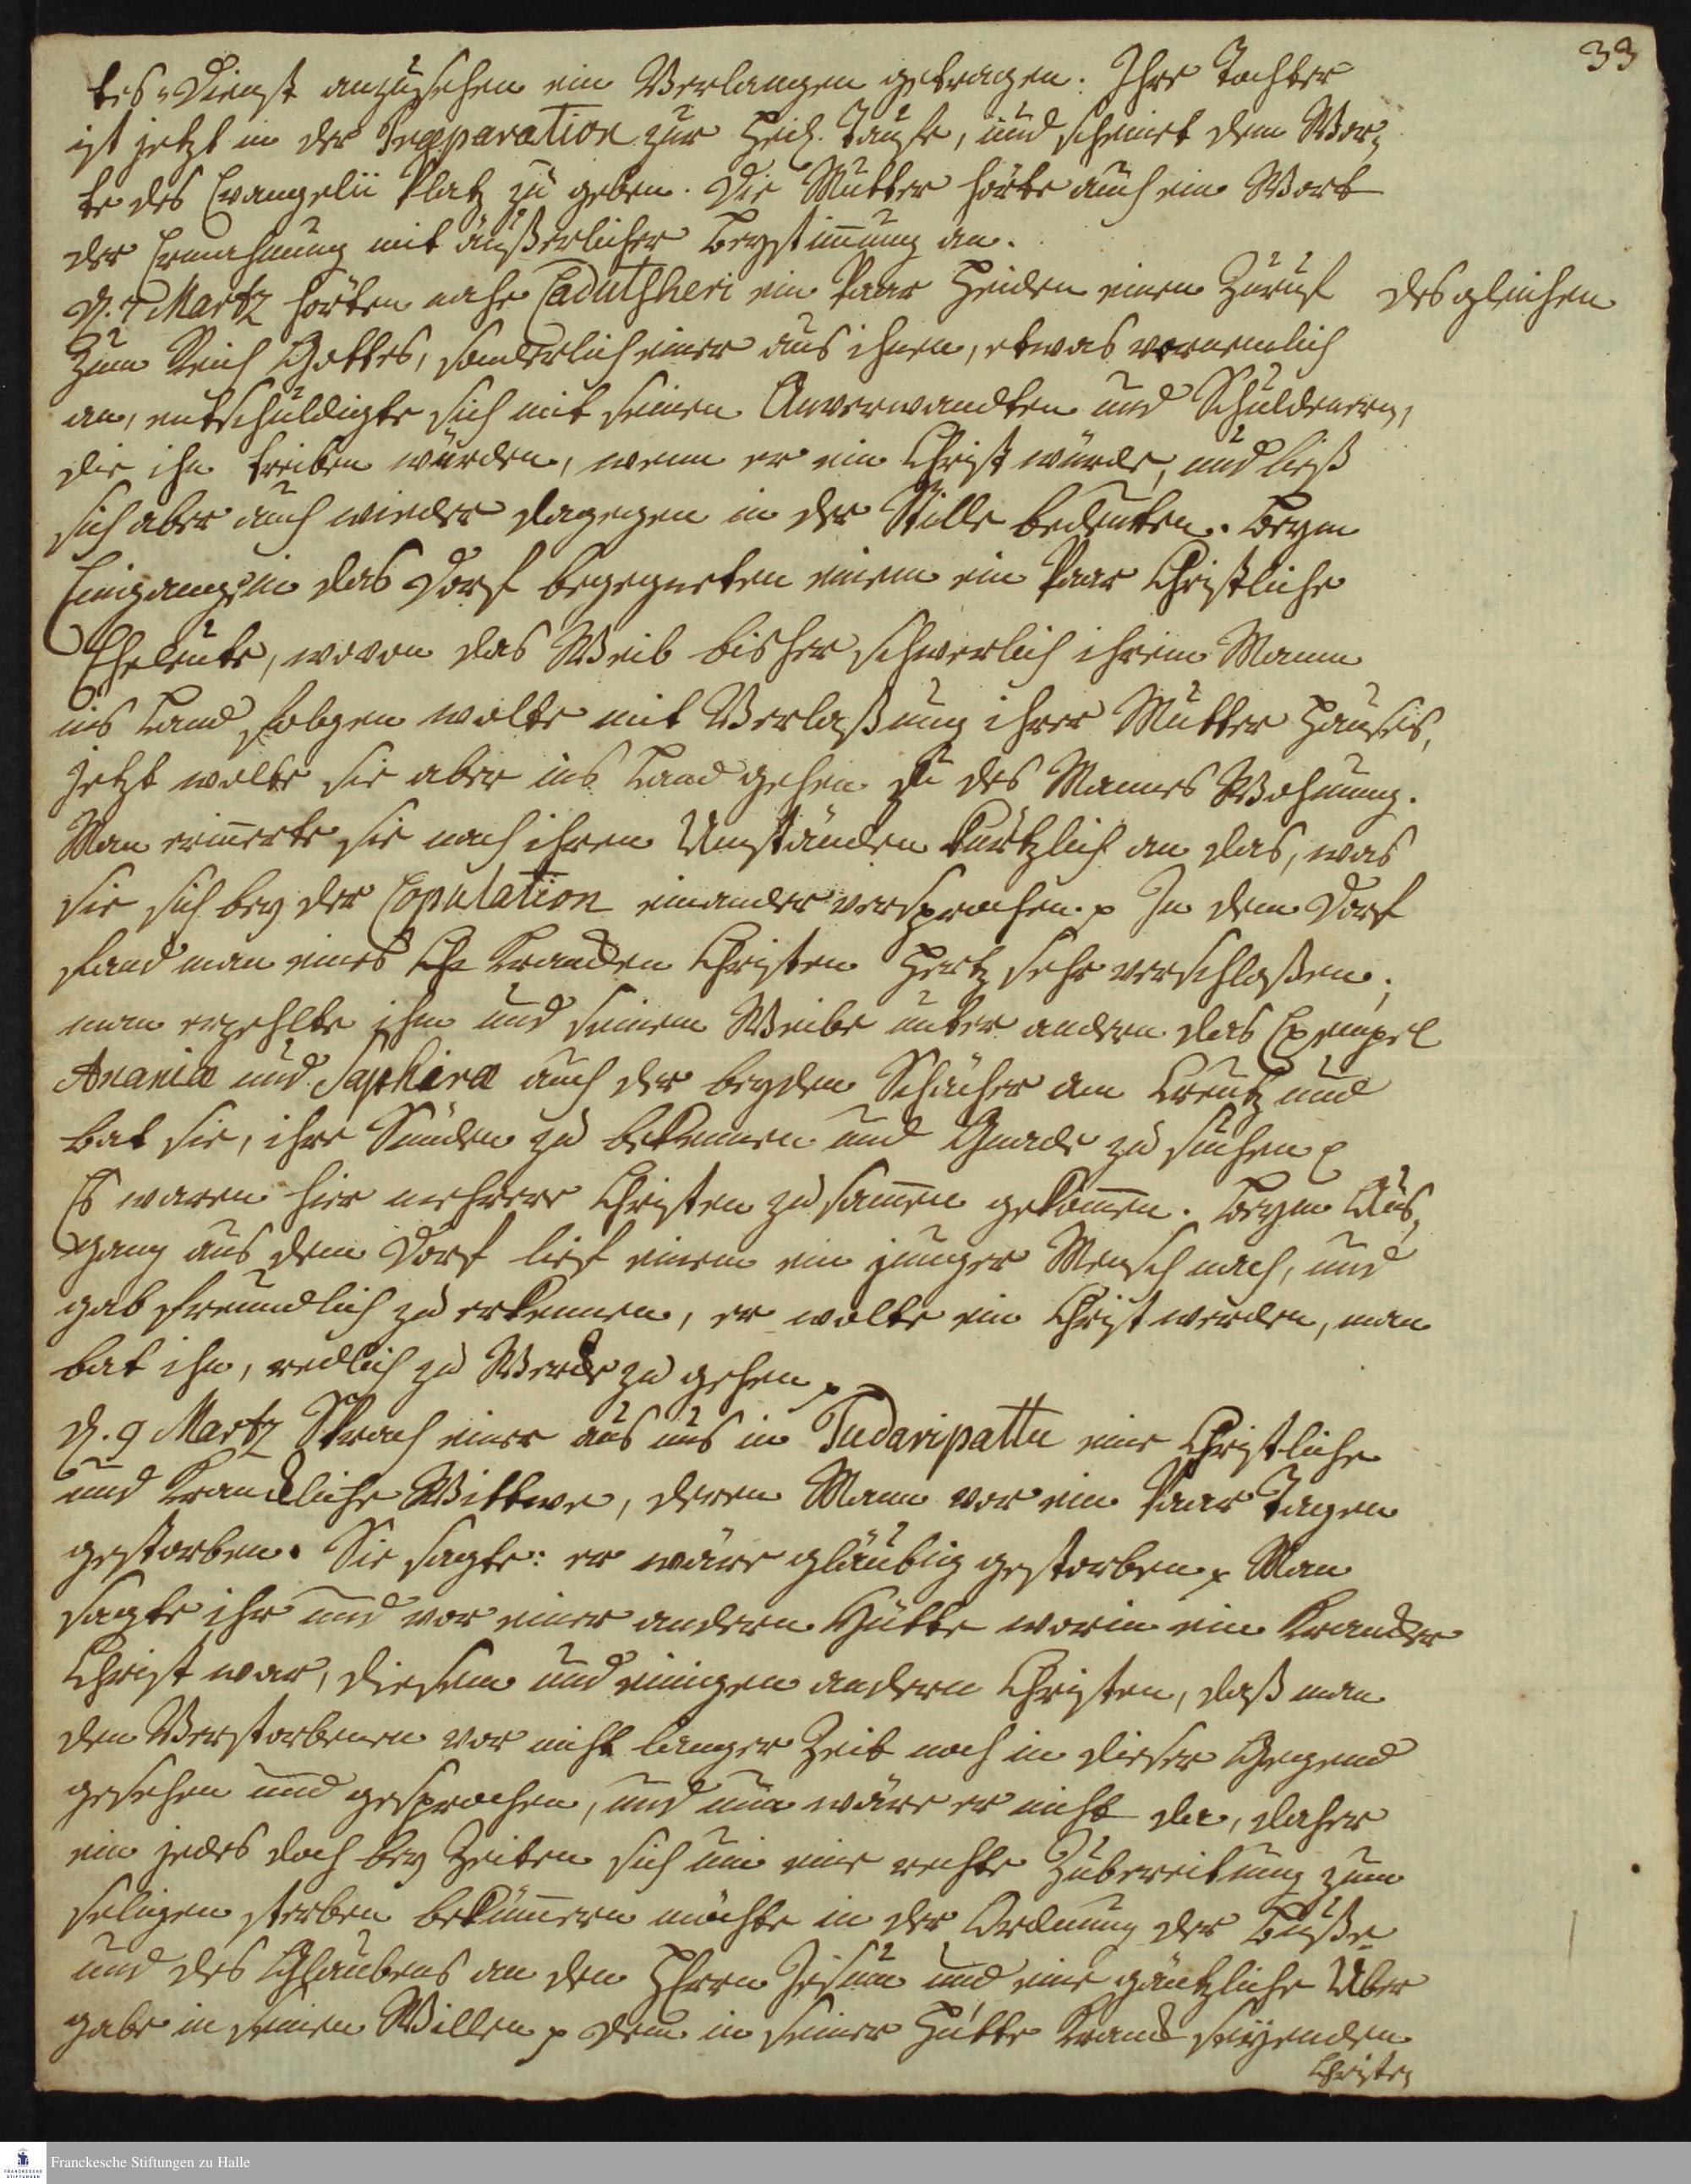 33
tes-Dienst anzusehen ein Verlangen getragen. Ihre Tochter
ist jetzt in der Præparation zur Heil. Taufe, und scheinet dem Wor-
te des Evangelii Platz zu geben. Die Mutter hörte auch ein Wort
der Ermahnung mit äußerlicher Beystimmung an.
D. 7 Martz hörten nahe Cadutsheri ein Paar Heiden einen Zuruf
desgleichen
zum Reich Gottes, sonderlich einer aus ihnen, etwas vernemlich
an, entschuldigte sich mit seinen Anverwandten und Schuldenern,
die ihn treiben würden, wenn er ein Christ würde, und ließ
sich aber auch wieder dagegen in der Stille bedeuten. Beym
Eingang in das Dorf begegneten einem ein Paar Christliche
Eheleute, wovon das Weib bisher schwerlich ihrem Mann
ins Land folgen wolte mit Verlaßung ihrer Mutter Hauses,
jetzt wolte sie aber ins Land gehen zu des Mannes Wohnung.
Man erinnerte sie nach ihren Umständen kürtzlich an das, was
sie sich bey der Copulation einander versprochen. p In dem Dorf
fand man eines Ch krancken Christen Hertz sehr verschloßen;
man erzehlte ihm und seinem Weibe unter andern das Exempel
Ananiæ und Saphiræ auch der beyden Schächer am Creutz und
bat sie, ihre Sünden zu bekennen und Gnade zu suchen p
Es waren hier mehrere Christen zusammen gekommen. Beym Aus-
gang aus dem Dorf lief einem ein junger Mensch nach, und
gab freundlich zu erkennen, er wolte ein Christ werden, man
bat ihn, redlich zu Wercke zu gehen p
D. 9 Martz Sprach einer aus uns in Tudaripattu eine Christliche
und kranckliche Wittwe, deren Mann vor ein Paar Tagen
gestorben. Sie sagte: er wäre gläubig gestorben p Man
sagte ihr und vor einer andern Hütte worin ein krancker
Christ war, diesem und einigen andern Christen, daß man
den Verstorbenen vor nicht langer Zeit noch in dieser Gegend
gesehen und gesprochen, und nun wäre er nicht da, daher
ein jedes doch bey Zeiten sich um eine rechte Zubereitung zum
seligen sterben bekümmern möchte in der Ordnung der Buße
und des Glaubens an den HErrn Jesum und eine gäntzliche Über
gabe in seinen Willen p dem in seiner Hütte kranck seyenden
Christen
Franckesche Stiftungen zu Halle
FRANCKESCHE STIFTUNGEN